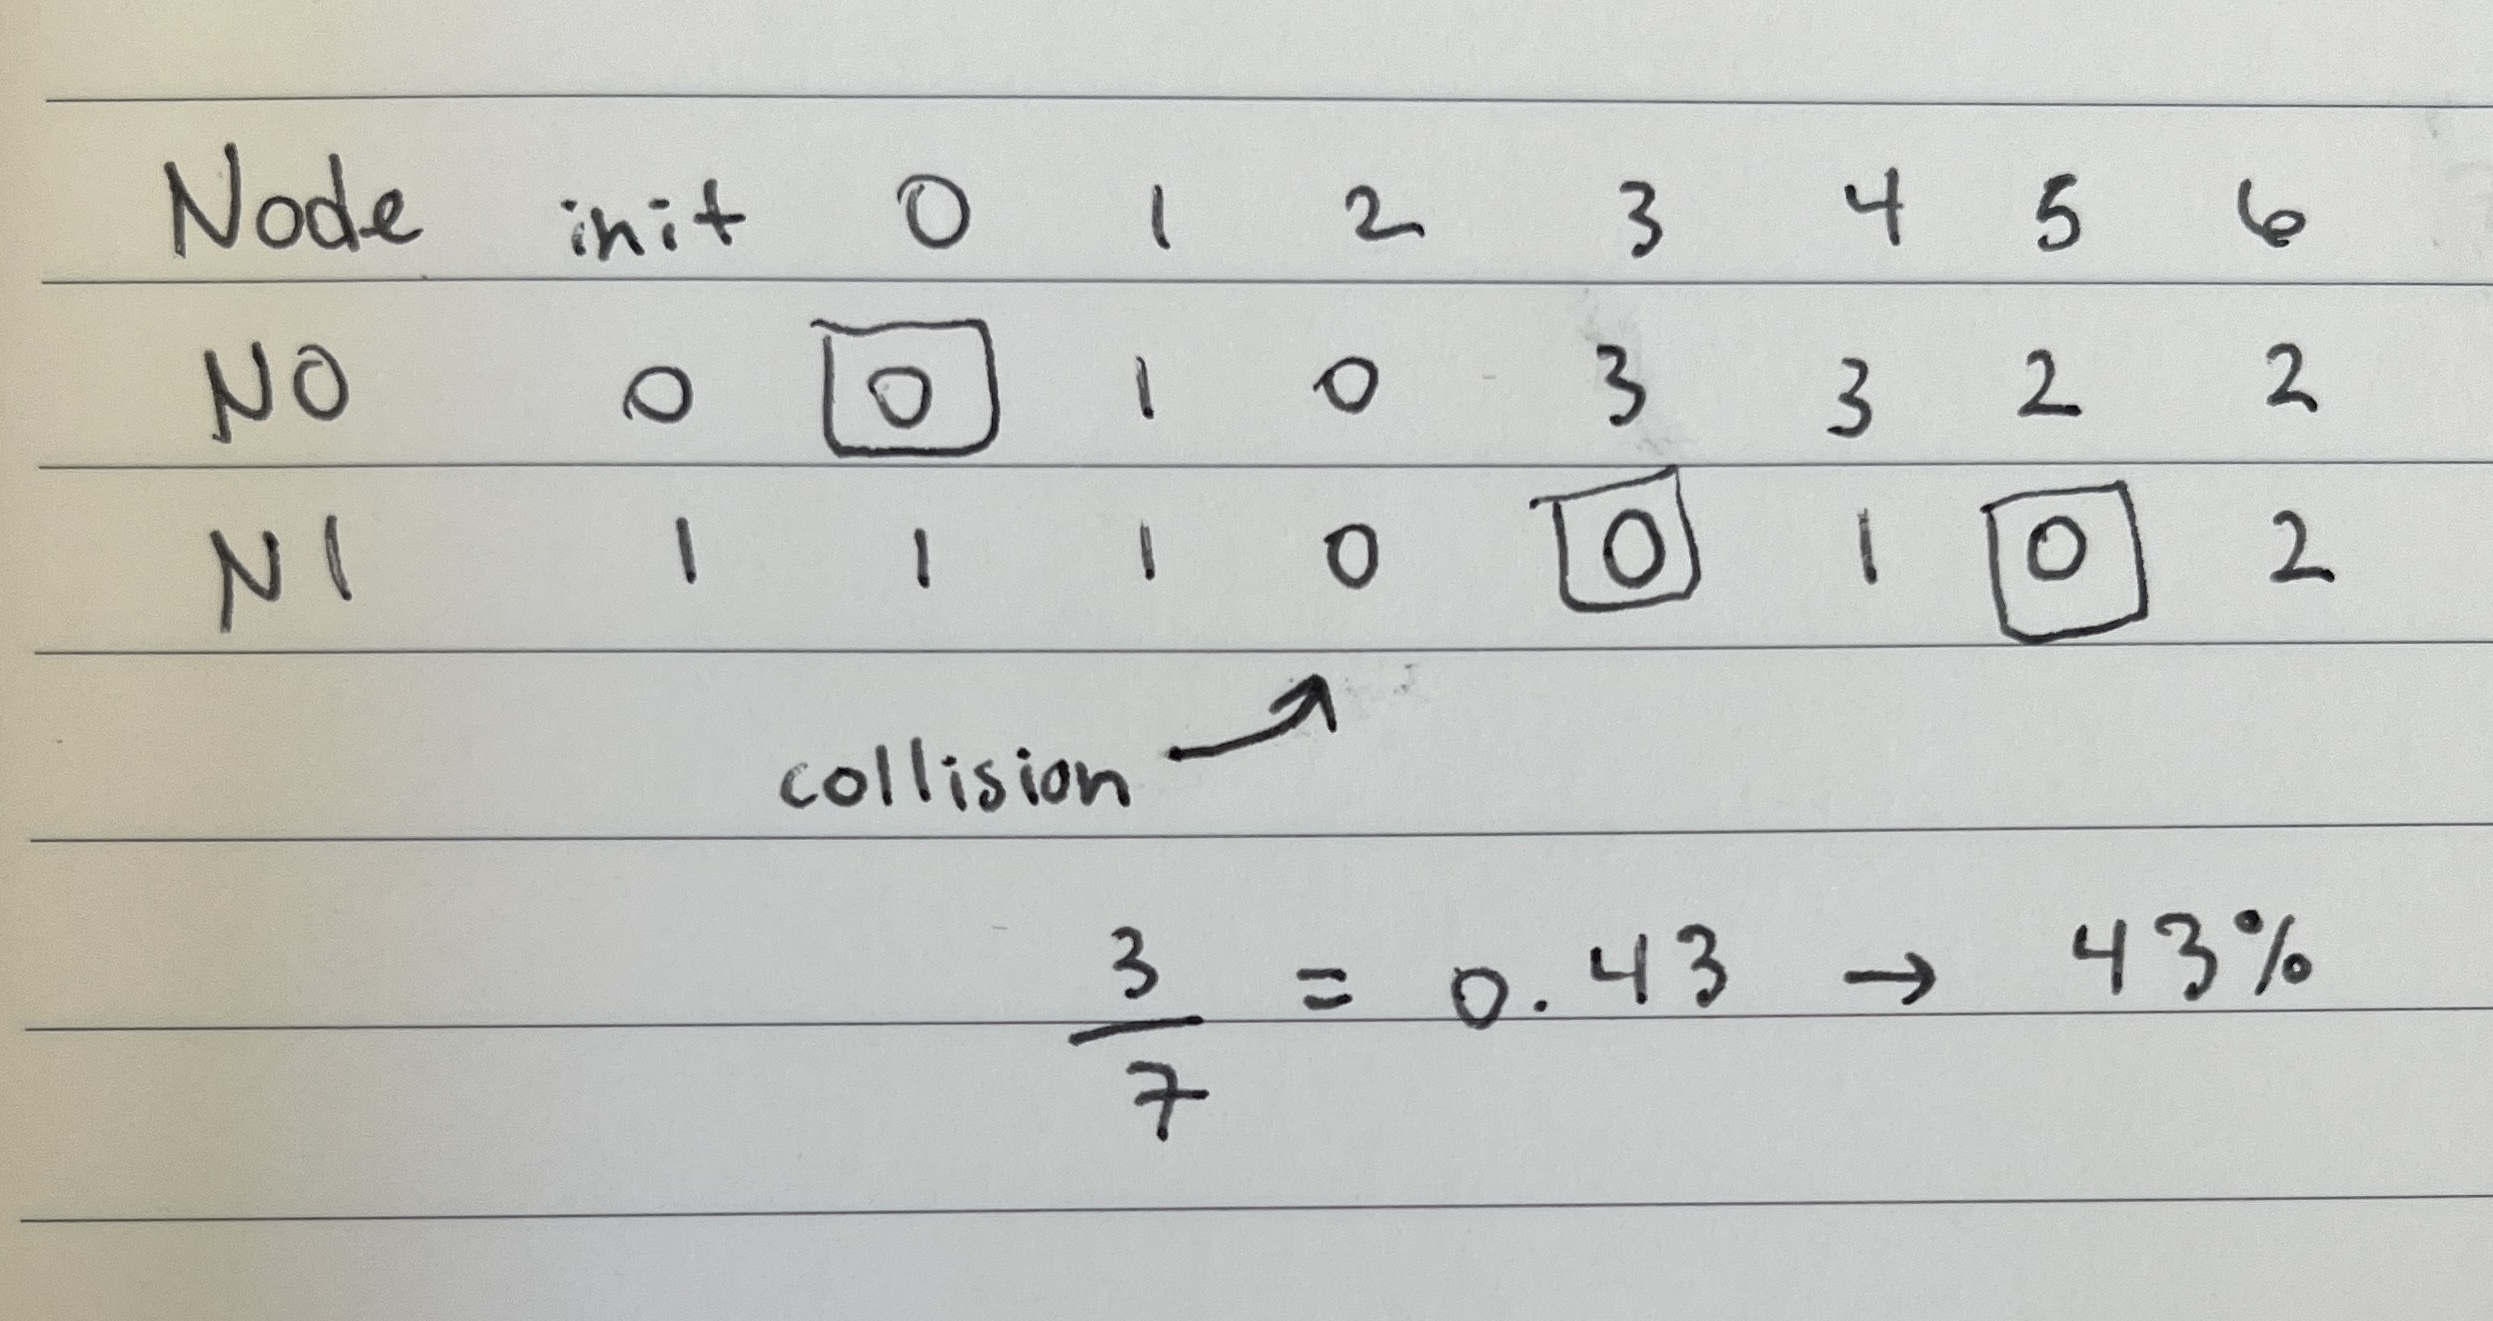 Node init 0 1 2 3 4 5 6
N0 0 0 1 0 3 3 2 2
N1 1 1 1 0 0 1 0 2
collision
3
— = 0.43 → 43%
7